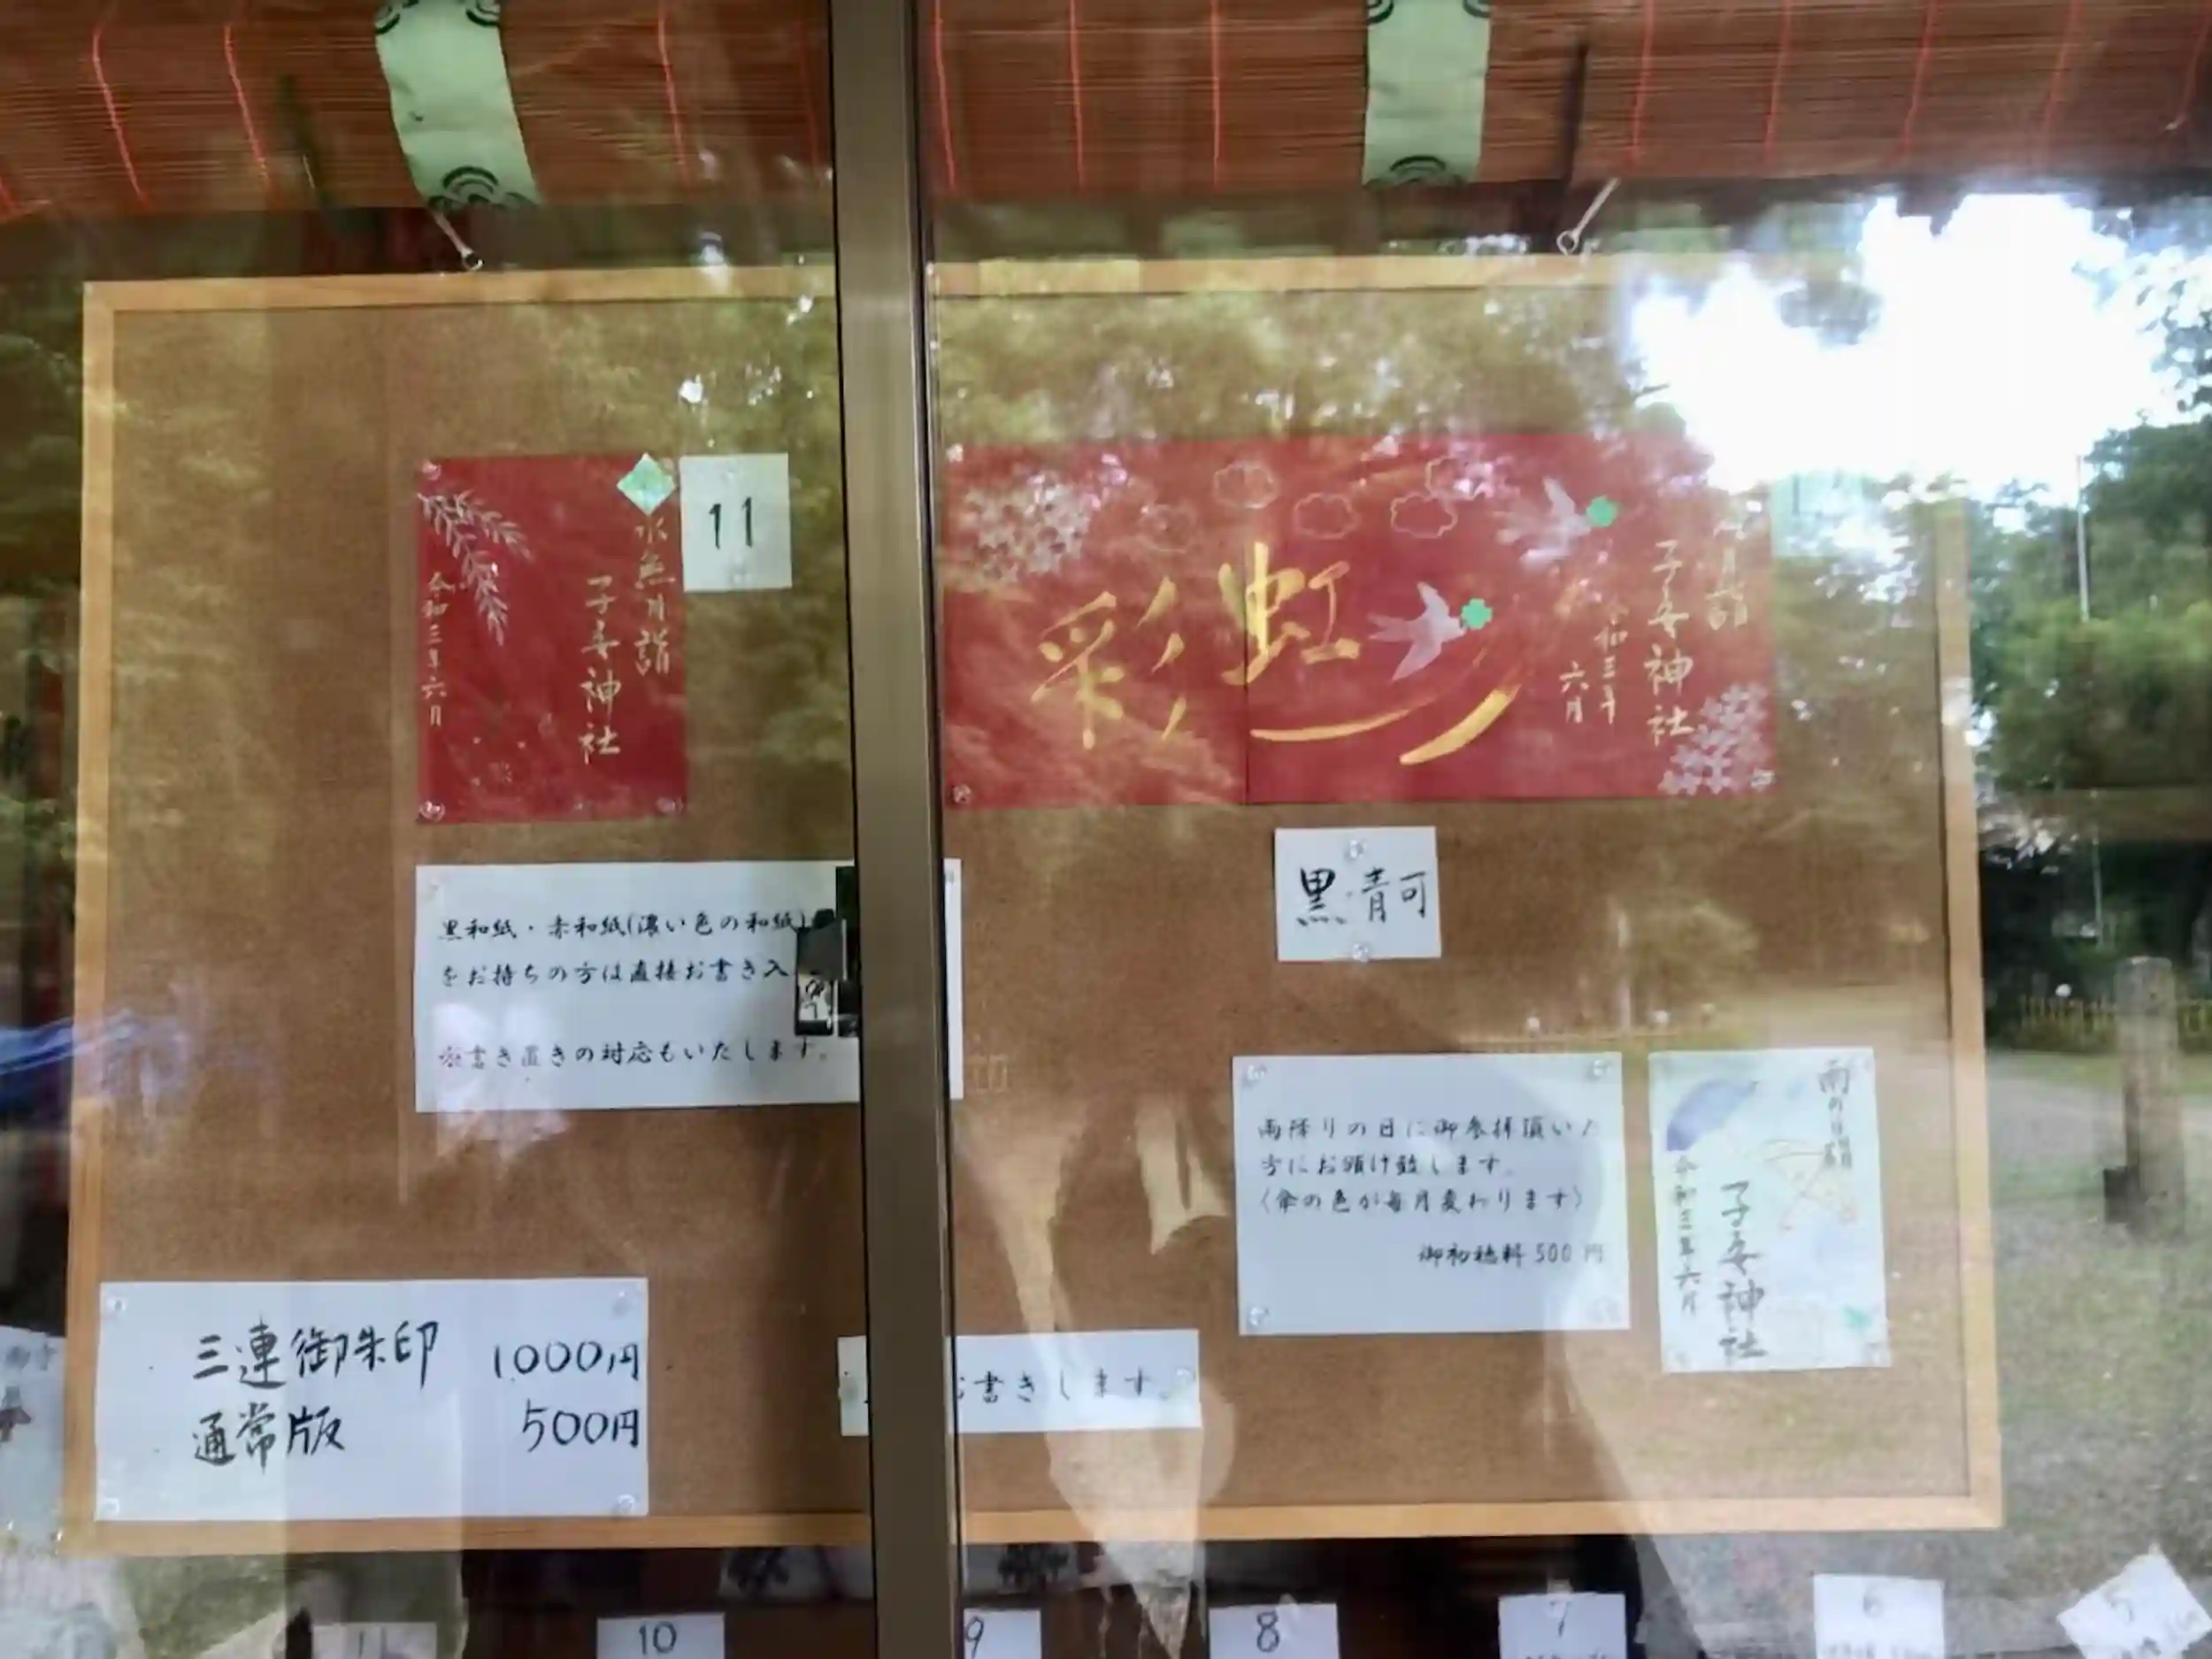 水無月詣
子安神社
令和三年六月
11
彩虹
月詣
子安神社
令和三年
六月
黒・青可
黒和紙・赤和紙(濃い色の和紙)
をお持ちの方は直接お書き入
※書き置きの対応もいたします。
雨降りの日に御参拝頂いた
方にお頒け致します。
(傘の色が毎月変わります)
御初穂料500円
雨の日
子安神社
令和三年六月
三連御朱印 1000円
通常版 500円
お書きします。
11
10
9
8
7
6
5